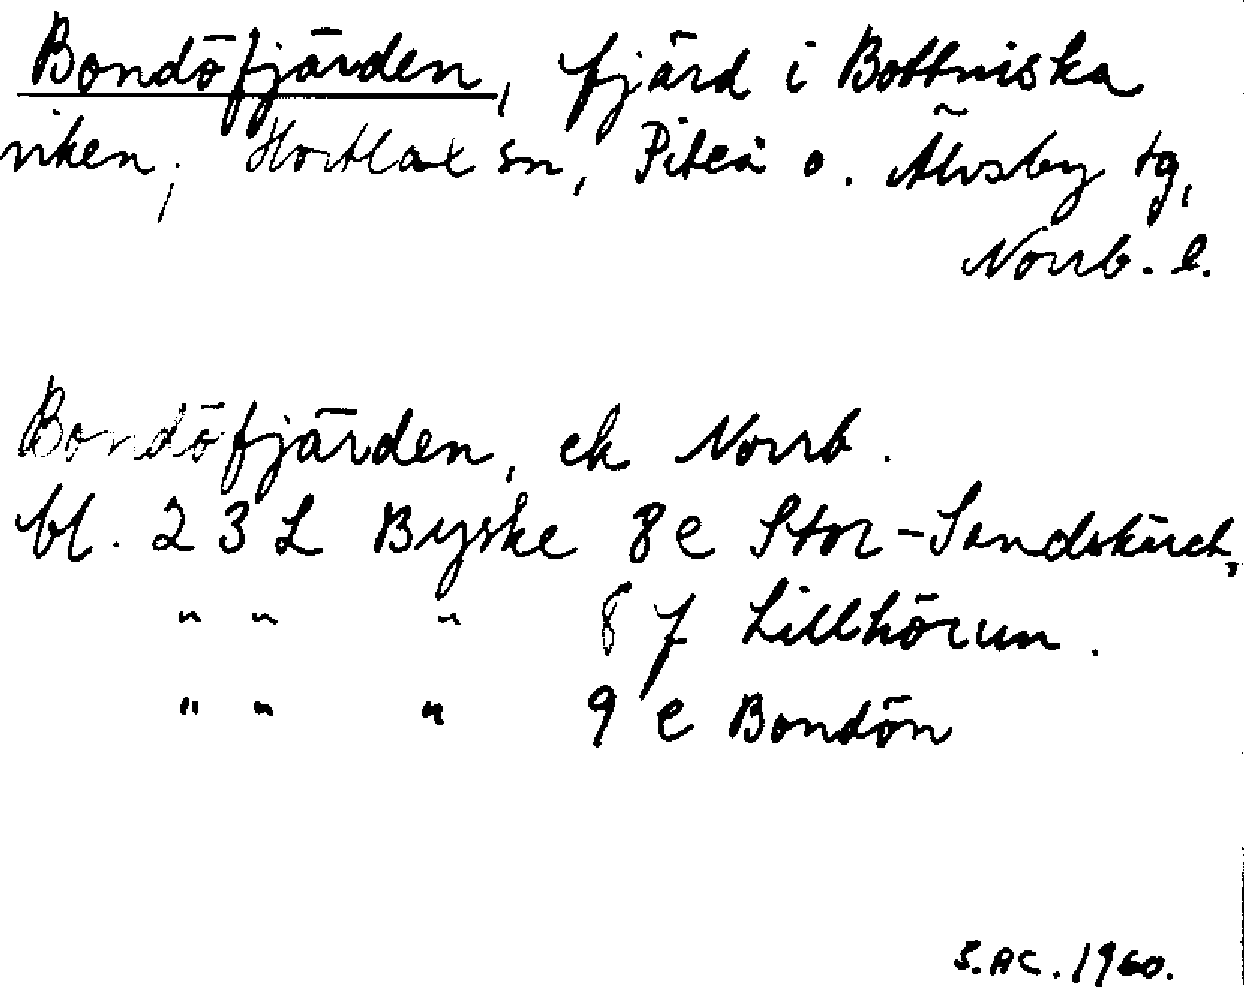 Bondöfjärden, fjärd i Bottniska
viken, Hortlax sn, Piteå o. Älvsby tg,
Norrb. l.
Bondöfjärden, ek Norrb.
bl. 23 L Byske 8 e Stor-Sandskäret,
" " " 8 f Lillhörun.
" " " 9 e Bondön
S.AC. 1960.